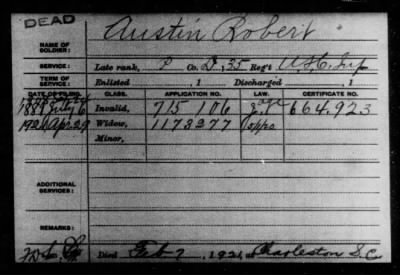 DEAD
Austin Robert
NAME OF SOLDIER:
SERVICE: Late rank, P Co. D, 35 Reg't U.S.C. Inf
TERM OF SERVICE: Enlisted , 1 Discharged , 1
DATE OF FILING. CLASS. APPLICATION NO. LAW. CERTIFICATE NO.
Invalid, 715 106 664.923
1921 Apr. 29 Widow, 1173277
Minor,
ADDITIONAL SERVICES:
REMARKS:
Died Feb 7, 1921, at Charleston S.C.